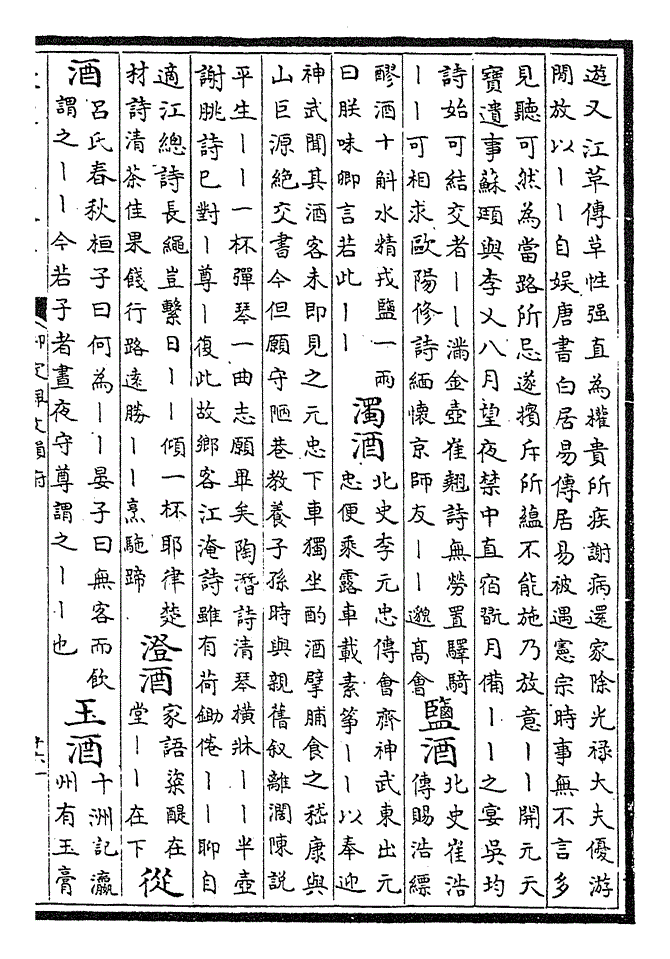 遊又江革傳革性强直為權貴所疾謝病還家除光禄大夫優游
閒放以丨丨自娱唐書白居易傳居易被遇憲宗時事無不言多
見聽可然為當路所忌遂擯斥所藴不能施乃放意丨丨開元天
寳遺事蘇頲與李乂八月望夜禁中直宿翫月備丨丨之宴吳均
詩始可結交者丨丨滿金壺崔翹詩無勞置驛騎
丨丨可相求歐陽修詩緬懷京師友丨丨邈髙會
鹽酒
北史崔浩
傳賜浩縹
醪酒十斛水精戎鹽一兩
曰朕味卿言若此丨丨
濁酒
北史李元忠傳會齊神武東出元
忠便乘露車載素筝丨丨以奉迎
神武聞其酒客未即見之元忠下車獨坐酌酒擘脯食之嵇康與
山巨源絶交書今但願守陋巷教養子孫時與親舊叙離濶陳説
平生丨丨一杯彈琴一曲志願畢矣陶潛詩清琴横牀丨丨半壺
謝朓詩已對丨尊丨復此故鄉客江淹詩雖有荷鋤倦丨丨聊自
適江總詩長繩豈繫日丨丨傾一杯耶律楚
材詩清茶佳果餞行路遠勝丨丨烹駞蹄
澄酒
家語粢醍在
堂丨丨在下
從
酒
呂氏春秋桓子曰何為丨丨晏子曰無客而飲
謂之丨丨今若子者晝夜守尊謂之丨丨也
玉酒
十洲記瀛
州有玉膏